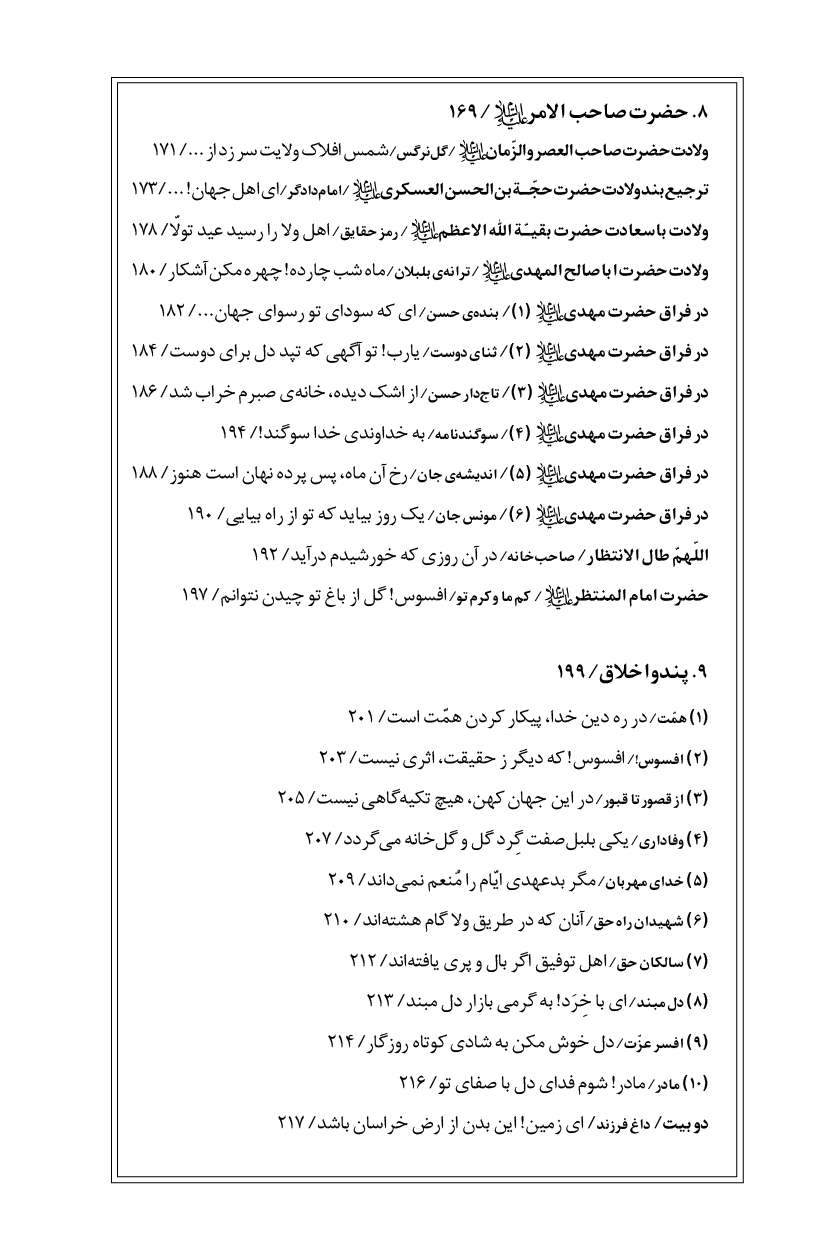 ۸. حضرت صاحب الامر علیه‌السلام / ۱۶۹
ولادت حضرت صاحب العصر والزّمان علیه‌السلام / گل نرگس/ شمس افلاک ولایت سر زد از .../ ۱۷۱
ترجیع بند ولادت حضرت حجّـة بن الحسن العسکری علیه‌السلام / امام دادگر/ ای اهل جهان! .../ ۱۷۳
ولادت باسعادت حضرت بقیـّة الله الاعظم علیه‌السلام / رمز حقایق/ اهل ولا را رسید عید تولّا/ ۱۷۸
ولادت حضرت اباصالح المهدی علیه‌السلام / ترانه‌ی بلبلان/ ماه شب چارده! چهره مکن آشکار/ ۱۸۰
در فراق حضرت مهدی علیه‌السلام (۱)/ بنده‌ی حسن/ ای که سودای تو رسوای جهان.../ ۱۸۲
در فراق حضرت مهدی علیه‌السلام (۲)/ ثنای دوست/ یارب! تو آگهی که تپد دل برای دوست/ ۱۸۴
در فراق حضرت مهدی علیه‌السلام (۳)/ تاج‌دار حسن/ از اشک دیده، خانه‌ی صبرم خراب شد/ ۱۸۶
در فراق حضرت مهدی علیه‌السلام (۴)/ سوگندنامه/ به خداوندی خدا سوگند!/ ۱۹۴
در فراق حضرت مهدی علیه‌السلام (۵)/ اندیشه‌ی جان/ رخ آن ماه، پس پرده نهان است هنوز/ ۱۸۸
در فراق حضرت مهدی علیه‌السلام (۶)/ مونس جان/ یک روز بیاید که تو از راه بیایی/ ۱۹۰
اللّهمّ طال الانتظار/ صاحب‌خانه/ در آن روزی که خورشیدم درآید/ ۱۹۲
حضرت امام المنتظر علیه‌السلام / کم ما و کرم تو/ افسوس! گل از باغ تو چیدن نتوانم/ ۱۹۷
۹. پند و اخلاق/ ۱۹۹
(۱) همّت/ در ره دین خدا، پیکار کردن همّت است/ ۲۰۱
(۲) افسوس!/ افسوس! که دیگر ز حقیقت، اثری نیست/ ۲۰۳
(۳) از قصور تا قبور/ در این جهان کهن، هیچ تکیه‌گاهی نیست/ ۲۰۵
(۴) وفاداری/ یکی بلبل‌صفت گِرد گل و گل‌خانه می‌گردد/ ۲۰۷
(۵) خدای مهربان/ مگر بدعهدی ایّام را مُنعم نمی‌داند/ ۲۰۹
(۶) شهیدان راه حق/ آنان که در طریق ولا گام هشته‌اند/ ۲۱۰
(۷) سالکان حق/ اهل توفیق اگر بال و پری یافته‌اند/ ۲۱۲
(۸) دل مبند/ ای با خِرَد! به گرمی بازار دل مبند/ ۲۱۳
(۹) افسر عزّت/ دل خوش مکن به شادی کوتاه روزگار/ ۲۱۴
(۱۰) مادر/ مادر! شوم فدای دل با صفای تو/ ۲۱۶
دو بیت/ داغ فرزند/ ای زمین! این بدن از ارض خراسان باشد/ ۲۱۷